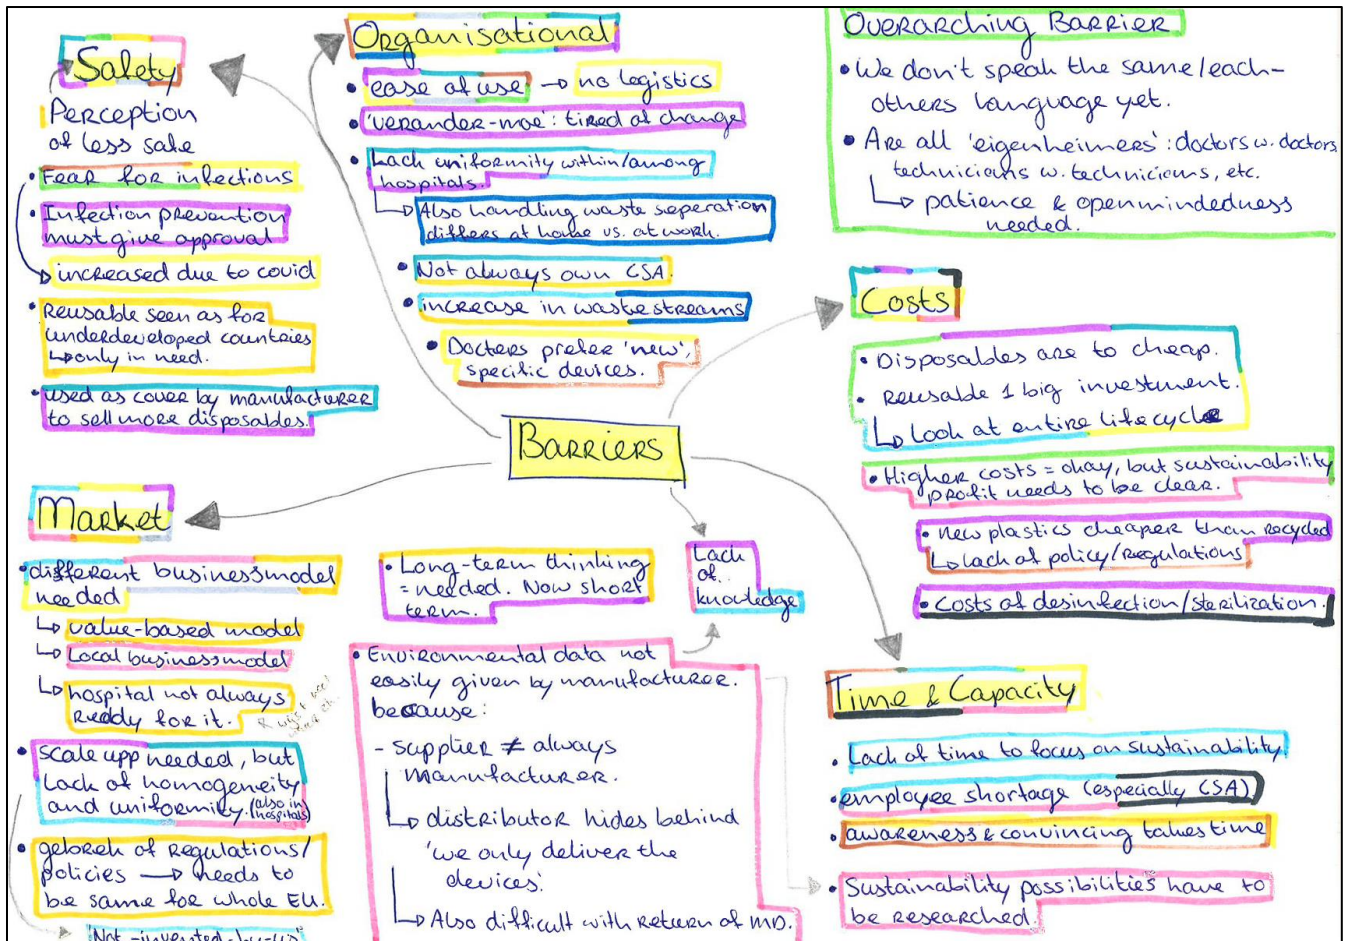 Safety
Perception
of less safe
• Fear for infections
• Infection prevention
must give approval
increased due to covid
• Reusable seen as for
underdeveloped countries
↳ only in need.
• used as cover by manufacturer
to sell more disposables.
Organisational
• ease of use → no logistics
• 'verander-moe': tired of change
• Lack uniformity within/among
hospitals.
↳ Also handling waste seperation
differs at home vs. at work.
• Not always own CSA.
• increase in waste streams
• Docters prefer 'new',
specific devices.
Overarching Barrier
• We don't speak the same/each-
others language yet.
• Are all 'eigenheimers': doctors w. doctors,
technicians w. technicians, etc.
↳ patience & openmindedness
needed.
Costs
• Disposables are to cheap.
• reusable 1 big investment.
↳ Look at entire lifecycle
• Higher costs = okay, but sustainability
profit needs to be clear.
• new plastics cheaper than recycled
↳ Lack of policy/regulations
• Costs of desinfection/sterilization.
Barriers
Market
• different businessmodel
needed
↳ value-based model
↳ Local businessmodel
↳ hospital not always
ready for it.
• scale upp needed, but
Lack of homogeneity
and uniformity. (also in
hospitals)
• gebrek of regulations/
policies → needs to
be same for whole EU.
'Not-invented-by-us'
• Long-term thinking
= needed. Now short
term.
Lack
of
knowledge
• Environmental data not
easily given by manufacturer.
because:
- supplier ≠ always
manufacturer.
↳ distributor hides behind
'we only deliver the
devices'.
↳ Also difficult with return of MD.
Time & Capacity
• Lack of time to focus on sustainability
• employee shortage (especially CSA)
• awareness & convincing takes time
• Sustainability possibilities have to
be researched.